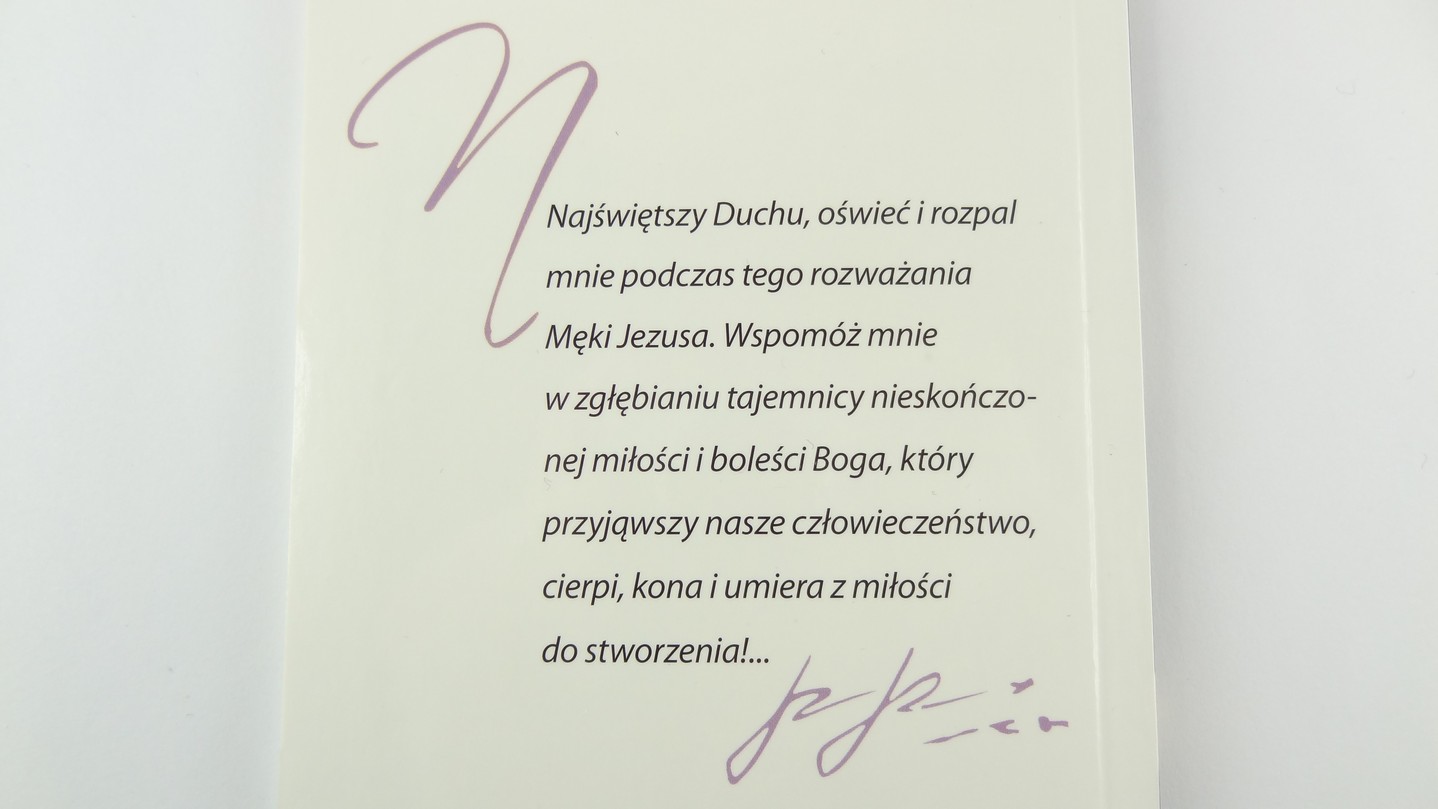 N
Najświętszy Duchu, oświeć i rozpal
mnie podczas tego rozważania
Męki Jezusa. Wspomóż mnie
w zgłębianiu tajemnicy nieskończo-
nej miłości i boleści Boga, który
przyjąwszy nasze człowieczeństwo,
cierpi, kona i umiera z miłości
do stworzenia!...